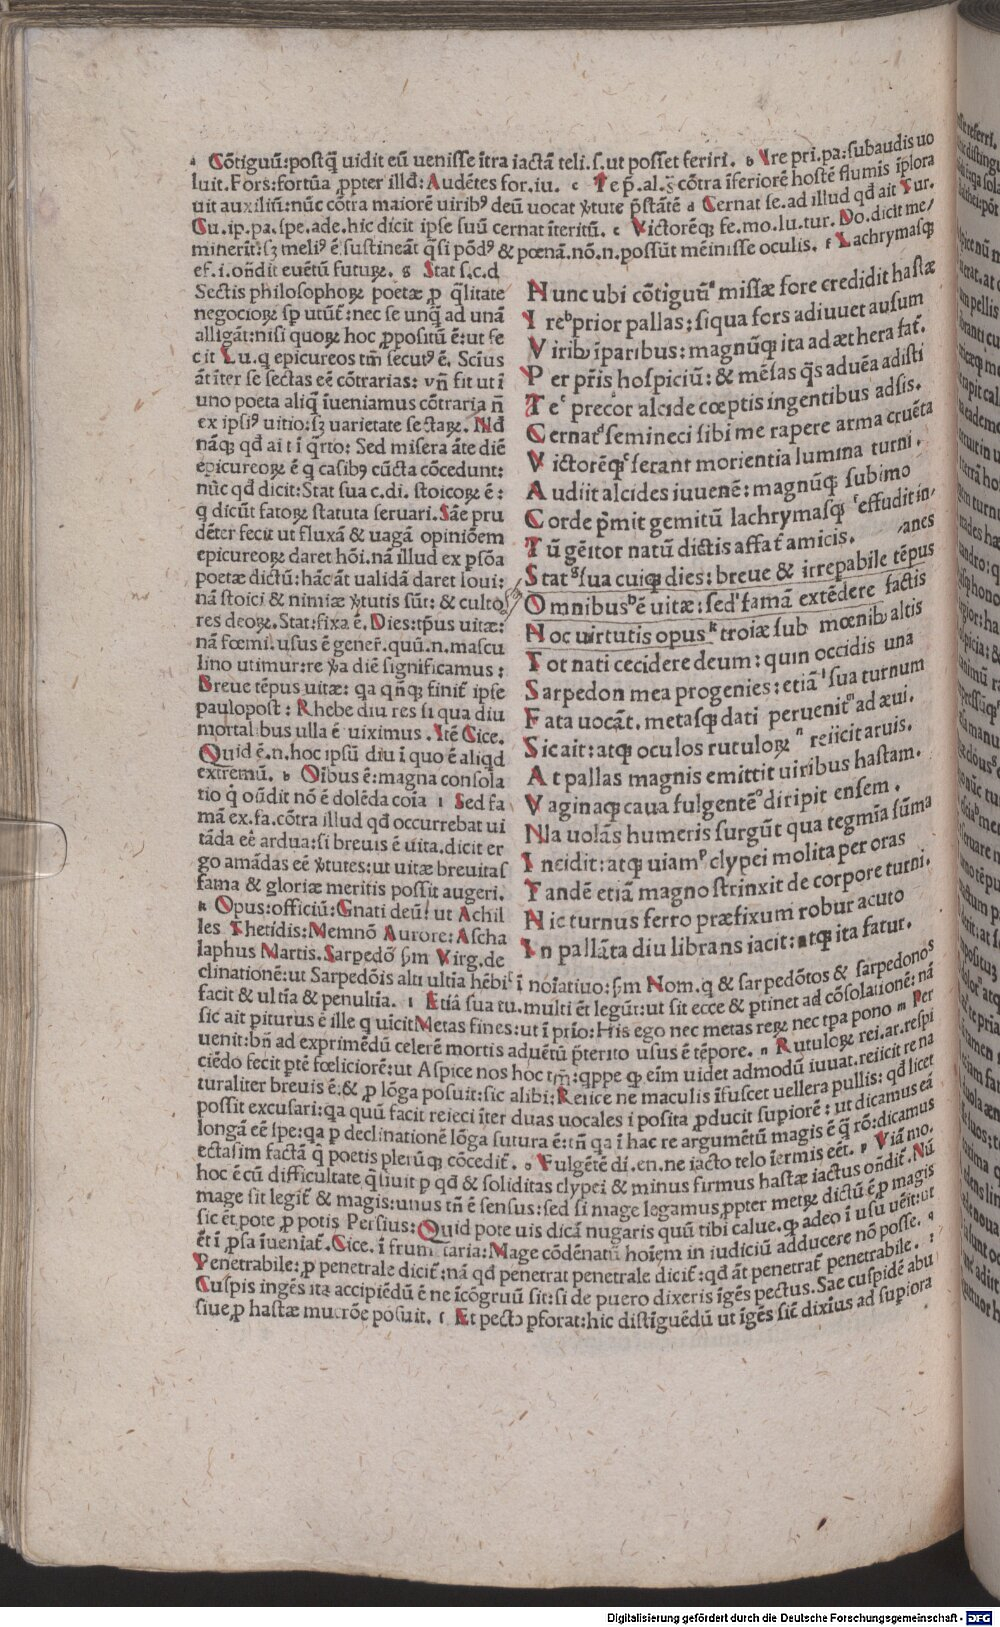 a Cōtiguū:postq̄ uidit eū uenisse ītra iactā teli.s.ut posset feriri. b Ire pri.pa:subaudis uo
luit.Fors:fortūa ꝓpter illđ:Audētes for.iu. c Te p̄.al. cōtra īferiorē hostē flumis īplora
uit auxiliū:nūc cōtra maiorē uiribꝰ deū uocat ꝟtute p̄stātē d Cernat se.ad illud qđ ait Tur.
Cu.ip.pa.spe.ade.hic dicit ipse suū cernat īteritū. e Victorēqꝫ fe.mo.lu.tur. Do.dicit me/
minerīt:sꝫ meliꝰ ē sustineāt q̄si pōdꝰ & pœnā.nō.n.possūt mēinisse oculis. f Lachrymasqꝫ
ef.i.oñdit euētū futuꝝ. g Stat s.c.d
Sectis philosophoꝝ poetæ ꝓ q̄litate
negocioꝝ sp utūt̄:nec se unq̄ ad unā
alligāt:nisi quoꝝ hoc ꝓpositū ē:ut fe
cit Lu.q epicureos tm̄ secutꝰ ē. Scīus
āt īter se sectas eē cōtrarias: vñ fit ut ī
uno poeta aliq̄ īueniamus cōtraria ñ
ex ipsiꝰ uitio:sꝫ uarietate sectaꝝ. Nđ
nāqꝫ qđ ai t ī q̄rto: Sed misera āte diē
epicureoꝝ ē q casibꝰ cūcta cōcedunt:
nūc qđ dicit:Stat sua c.di. stoicoꝝ ē:
q dicūt fatoꝝ statuta seruari.Sāe pru
dēter fecit ut fluxā & uagā opiniōem
epicureoꝝ daret hōi.nā illud ex ꝑsōa
poetæ dictū:hāc āt ualidā daret Ioui:
nā stoici & nimiæ ꝟtutis sūt: & culto
res deoꝝ.Stat:fixa ē.Dies:tp̄us uitæ:
nā fœmi.usus ē gener̄.quū.n.mascu
lino utimur:re ꝟa diē significamus:
Breue tēpus uitæ: qa qñqꝫ finit̄ ipse
paulopost: Rhebe diu res si qua diu
mortalibus ulla ē uiximus .Itē Cice.
Quid ē.n.hoc ipsū diu ī quo ē aliqd
extremū. h Oibus ē:magna consola
tio q̇ oñdit nō ē dolēda cōia i Sed fa
mā ex.fa.cōtra illud qđ occurrebat ui
tāda eē ardua:si breuis ē uita.dicit er
go amādas eē ꝟtutes:ut uitæ breuitas
fama & gloriæ meritis possit augeri.
k Opus:officiū:Gnati deū! ut Achil
les Thetidis:Memnō Aurore:Ascha
laphus Martis.Sarpedō ẜm Virg.de
clinationē:ut Sarpedōis alti ultīa hēbiᶜ ī noīatiuo:ẜm Nom.q & sarpedōtos & sarpedonos
facit & ultīa & penultīa. l Etiā sua tu.multi ēt legūt:ut sit ecce & ptinet ad cōsolationē:nā
sic ait piturus ē ille q uicit Metas fines:ut ī prīo:His ego nec metas reꝝ nec tpa pono m Per
uenit:bñ ad exprimēdū celerē mortis aduētū p̄terito usus ē tēpore. n Rutuloꝝ rei.ar.respi
ciēdo fecit ꝑtē fœliciorē:ut Aspice nos hoc tm̄:qppe qꝫ eīm uidet admodū iuuat.reiicit re na
turaliter breuis ē:& ꝓ lōga posuit:sic alibi:Reiice ne maculis īfuscet uellera pullis: qđ licet
possit excusari:qa quū facit reieci īter duas uocales i posita ꝓducit supiorē: ut dicamus eā
longā eē īpe:qa p declinationē lōga futura ē:tñ qa ī hac re argumētū magis ē q̄ rō:dicamus
ectasim factā q̄ poetis plerūqꝫ cōcedit̄. o Fulgētē di.en.ne iacto telo īermis eēt. p Viā mo.
hoc ē cū difficultate q̄siuit p qđ & soliditas clypei & minus firmus hastæ iactus oñdit̄.Nū
mage sit legit̄ & magis:unus tñ ē sensus:sed si mage legamus,ꝓpter metꝝ dictū ē,ꝓ magis
sic ēt pote ꝓ potis Persius:Quid pote uis dicā nugaris quū tibi calue.qꝫ adeo ī usu uēit:ut
ēt ī ꝓsa īueniat̄.Cice.ī frumētaria:Mage cōdēnatū hoīem in iudiciū adducere nō posse. q
Penetrabile:ꝓ penetrale dicit̄:nā qđ penetrat penetrale dicit̄:qđ āt penetrat̄ penetrabile. r
Cuspis ingēs ita accipiēdū ē ne īcōgruū sit:si de puero dixeris īgēs pectus.Sāe cuspidē abu
siue,ꝓ hastæ mucrōe posuit. s Et pectꝰ pforat:hic distīguēdū ut īgēs siē dixīus ad supiora
Nunc ubi cōtiguūᵃ missæ fore credidit hastæ
I reᵇprior pallas:siqua fors adiuuet ausum
V iribꝰ īparibus:magnūqꝫ ita ad æthera fat̄.
P er p̄ris hospiciū:& mēsas q̄s aduēa adisti
T eᶜ precor alcide cœptis ingentibus adsis.
C ernatᵈ semineci sibi me rapere arma cruēta
V ictorēqꝫᵉ ferant morientia lumina turni.
A udiit alcides iuuenē:magnūqꝫ sub imo
C orde p̄mit gemitū lachrymasqꝫ ᶠeffudit in/
anes
T ū gēitor natū dictis affat̄ amicis.
S tatᵍ sua cuiqꝫ dies:breue & irrepabile tēpus
O mnibusʰē uitæ:sedⁱ famā extēdere factis
H oc uirtutis opusᵏ troiæ sub mœnibꝰ altis
T ot nati cecidere deum: quin occidis una
S arpedon mea progenies:etiāˡ sua turnum
F ata uocāt.metasqꝫ dati peruenitᵐ ad æui.
S ic ait:atqꝫ oculos rutuloꝝ ⁿ reiicit aruis.
A t pallas magnis emittit uiribus hastam.
V aginaqꝫ caua fulgentēᵒ diripit ensem.
I lla uolās humeris surgūt qua tegmīa sūma
I ncidit:atqꝫ uiamᵖ clypei molita per oras
T andē etiā magno strinxit de corpore turni.
H ic turnus ferro præfixum robur acuto
I n pallāta diu librans iacit:atqꝫ ita fatur.
Digitalisierung gefördert durch die Deutsche Forschungsgemeinschaft - DFG